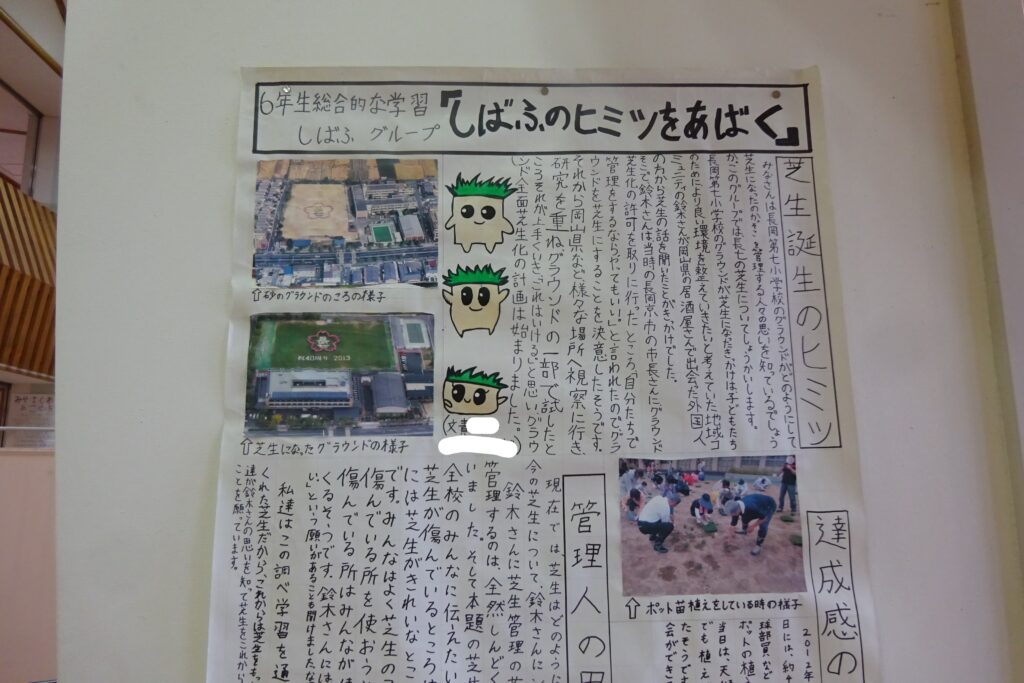 6年生総合的な学習
しばふ グループ
『しばふのヒミツをあばく』
芝生誕生のヒミツ
みなさんは長岡第七小学校のグラウンドがどのようにして
芝生になったのか、そして管理する人々の思いを知っているでしょう
か。このグループでは長七の芝生についてしょうかいします。
長岡第七小学校のグラウンドが芝生になったきっかけは子どもたち
のためにより良い環境を整えていきたいと考えていた地域コ
ミュニティの鈴木さんが岡山県の居酒屋さんで出会った外国人
の方から芝生の話を聞いたことがきっかけでした。
そこで鈴木さんは当時の長岡京市の市長さんにグラウンド
芝生化の許可を取りに行ったところ、「自分たちで
管理をするならやてもいい!」と言われたのでグラ
ウンドを芝生にすることを決意したそうです。
それから岡山県など様々な場所へ視察に行き
研究を重ね、グラウンドの一部で試したと
ころそれが上手くいき、「これはいける」と思い、グラウ
ンド全面芝生化の計画は始まりました。
(文書
⇧砂のグラウンドのころの様子
祝40周年 2013
⇧芝生になったグラウンドの様子
⇧ポット苗植えをしている時の様子
達成感の
2012年
日には、約
球部員など
ポットの植
当日は、天
でも植え
たそうです
会ができ
管理人の
現在では、芝生はどのように
今の芝生について、鈴木さんに
鈴木さんに芝生管理の
管理するのは、全然しんどく
いました。そして本題の芝生
全校のみんなに伝えたい
芝生が傷んでいるところは
には芝生がきれいなとこ
です。みんなはよく芝生の
傷んでいる所を使おうと
傷んでいる所はみんなが
くるそうです。鈴木さんには
いい」という願いがあることも聞けました。
私達はこの調べ学習を通
くれた芝生だから、これからは芝生をもっ
達が鈴木さんの思いを知って芝生をこれから
ことを願っています。